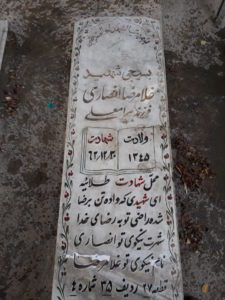 بسیجی شهید
غلامرضا انصاری
فرزند میرامعلی
ولادت شهادت
۱۳۴۵ ۶۲/۱۲/۳
محل شهادت طلائیه
ای شهیدی که داده تن برضا
شده راضی تو به رضای خدا
شهرت نیکوی تو انصاری
نام نیکوی تو غلامرضا
قطعه ۲۷ ردیف ۳۵ شماره ۴